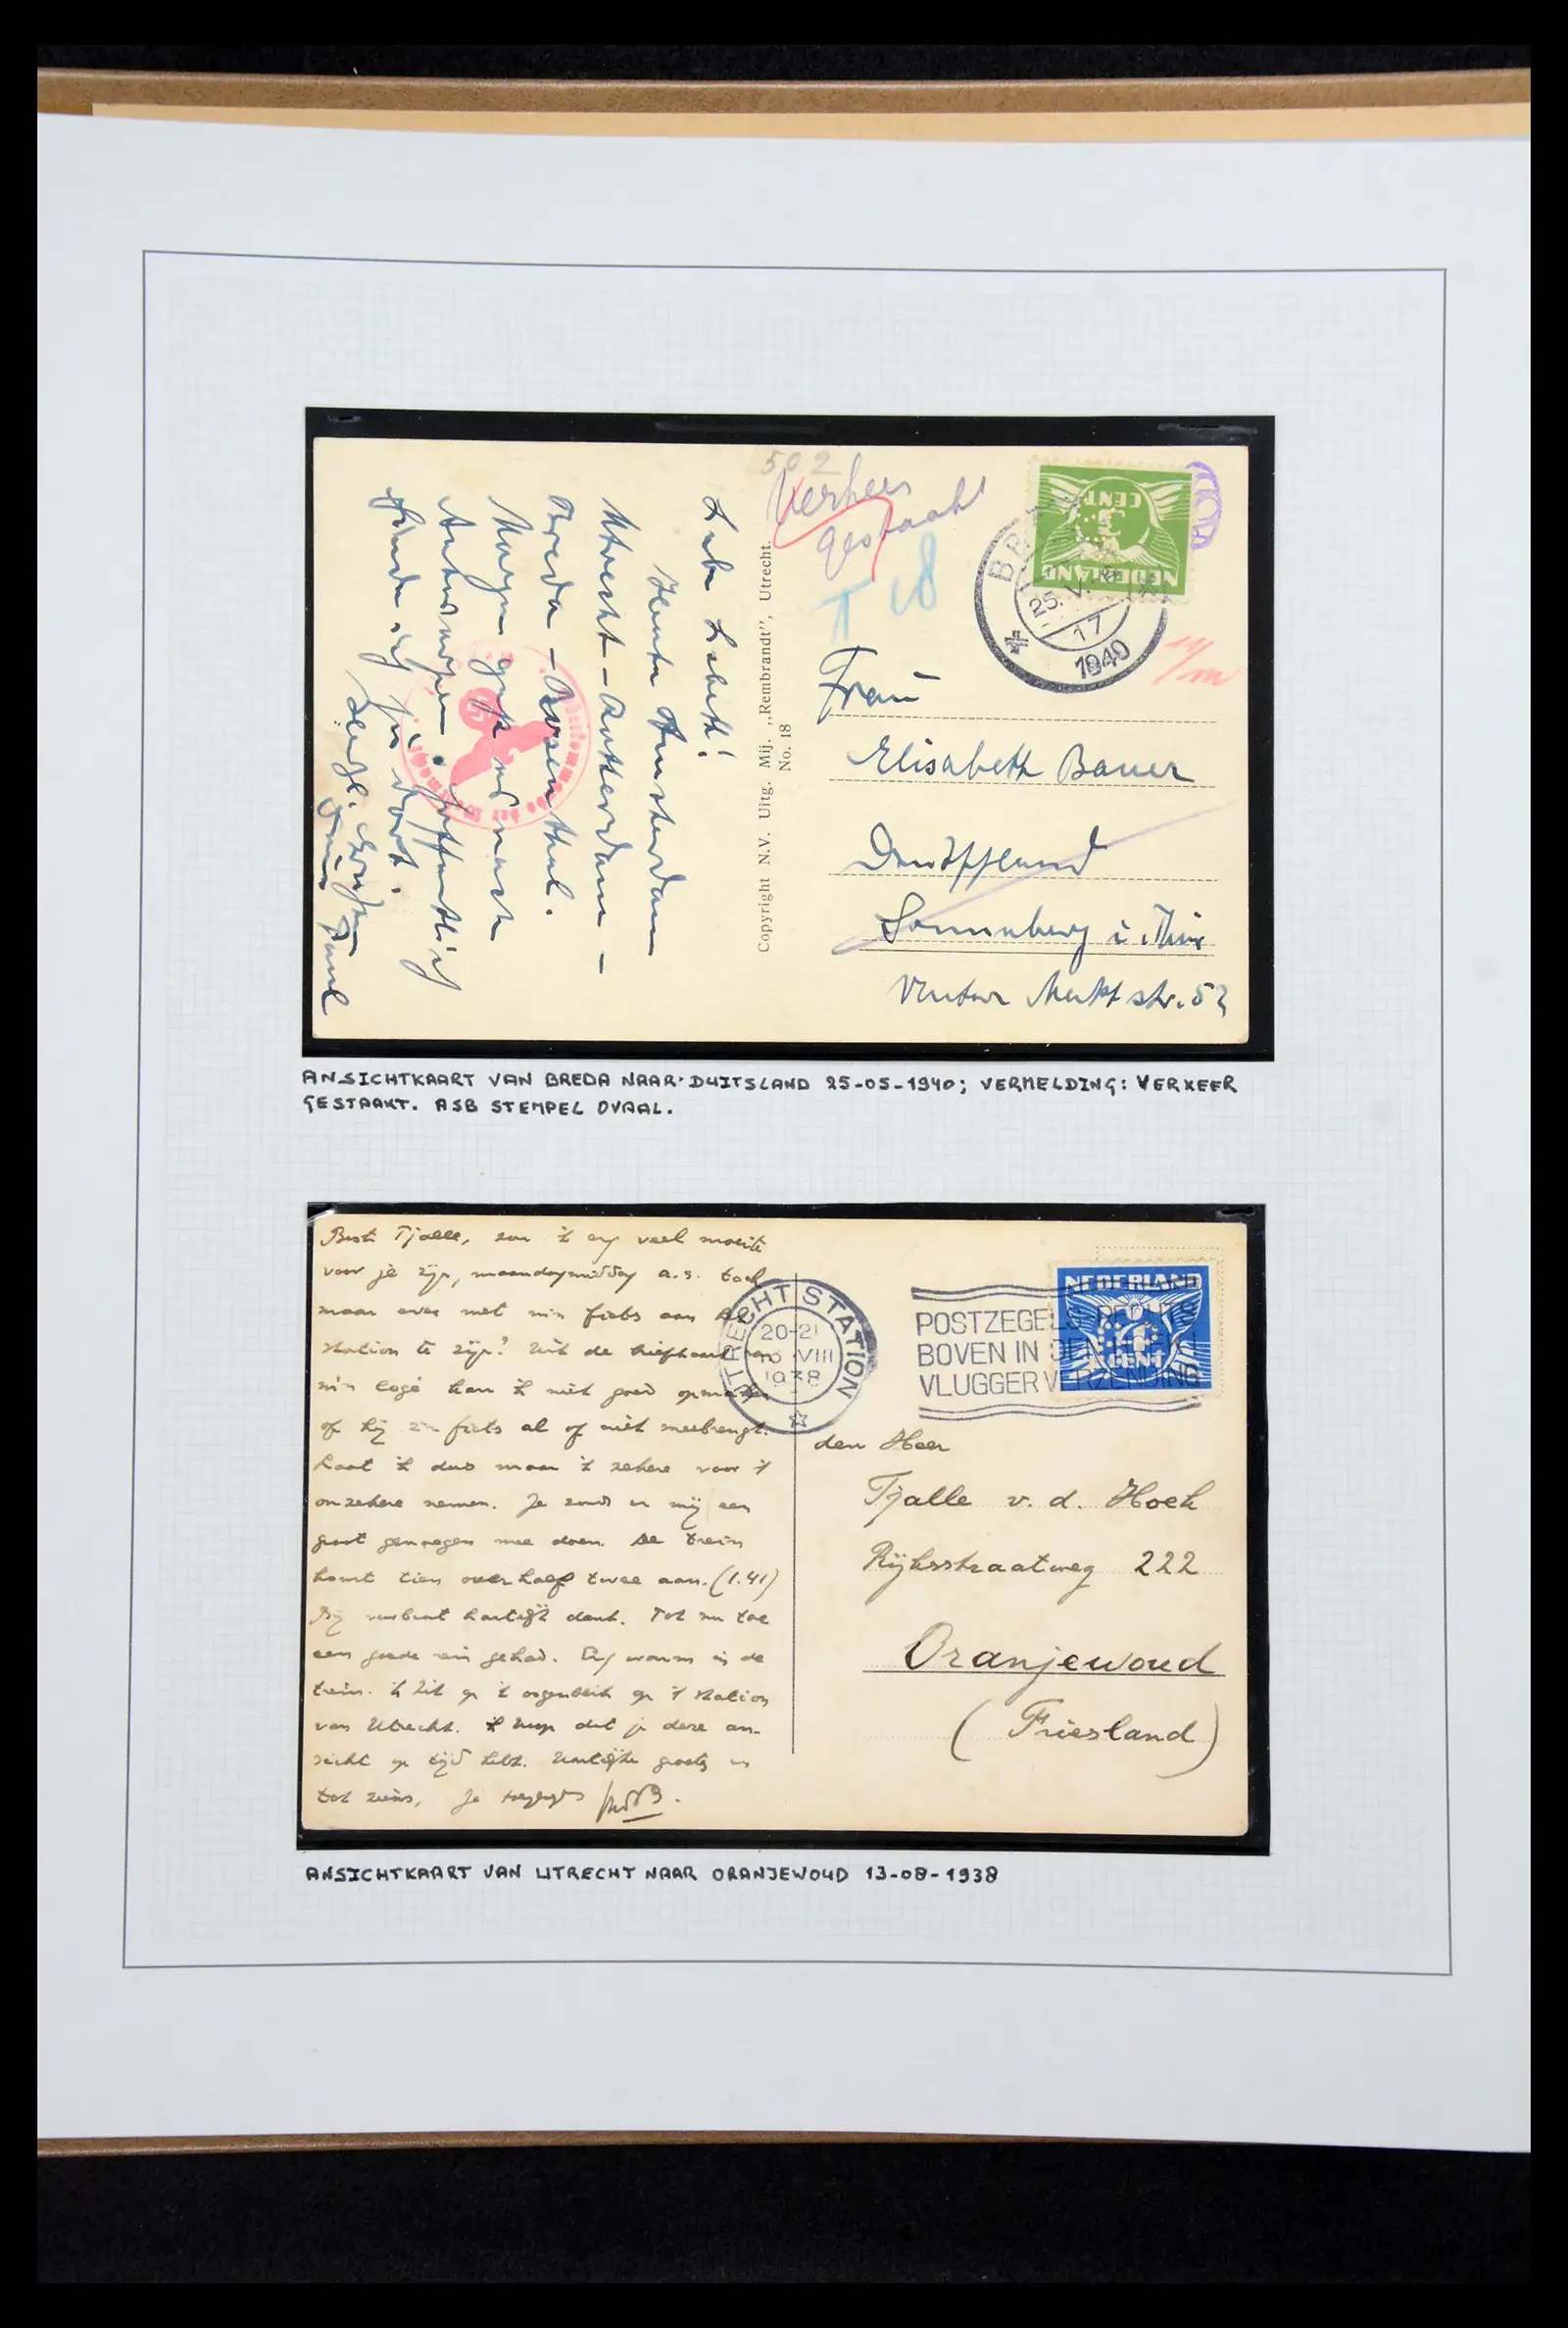 502
Verkeer
gestaakt
T 18
NEDERLAND
3
CENT
BREDA
25.V.
17
1940
Liebe Lisbeth!
Heute Amsterdam
Utrecht – Rotterdam –
Breda – Rosenthal.
Morgen geht es nach
Antwerpen. Hoffentlich
finde ich ja dort.
Herzl. Grüße
Paul
Copyright N.V. Uitg. Mij. „Rembrandt”, Utrecht.
No. 18
Frau
Elisabeth Bauer
Deutschland
Sonneberg i. Thür
Untere Marktstr. 52
ANSICHTKAART VAN BREDA NAAR DUITSLAND 25-05-1940; VERMELDING: VERKEER
GESTAAKT. ASB STEMPEL OVAAL.
Beste Tjalle, zou 'k erg veel moeite
voor je zijn, maandagmiddag a.s. toch
maar even met m'n fiets aan de
station te zijn? Uit de briefkaart van
m'n logé kan 'k niet goed opmaken
of hij z'n fiets al of niet meebrengt.
Laat 'k dus maar 't zekere voor 't
onzekere nemen. Je zoudt er mij een
groot genoegen mee doen. De trein
komt tien over half twee aan. (1.41)
Bij voorbaat hartelijk dank. Tot nu toe
een goede reis gehad. Erg warm in de
trein. 'k Zit op 't oogenblik op 't station
van Utrecht. 'k Hoop dat je deze an-
sicht op tijd hebt. Hartelijke groeten en
tot ziens, Je
UTRECHT STATION
20-21
VIII
1938
POSTZEGELS RECHTS
BOVEN IN DEN HOEK
VLUGGER VERZENDING
NEDERLAND
CENT
den Heer
Tjalle v. d. Hoek
Rijksstraatweg 222
Oranjewoud
(Friesland)
ANSICHTKAART VAN UTRECHT NAAR ORANJEWOUD 13-08-1938